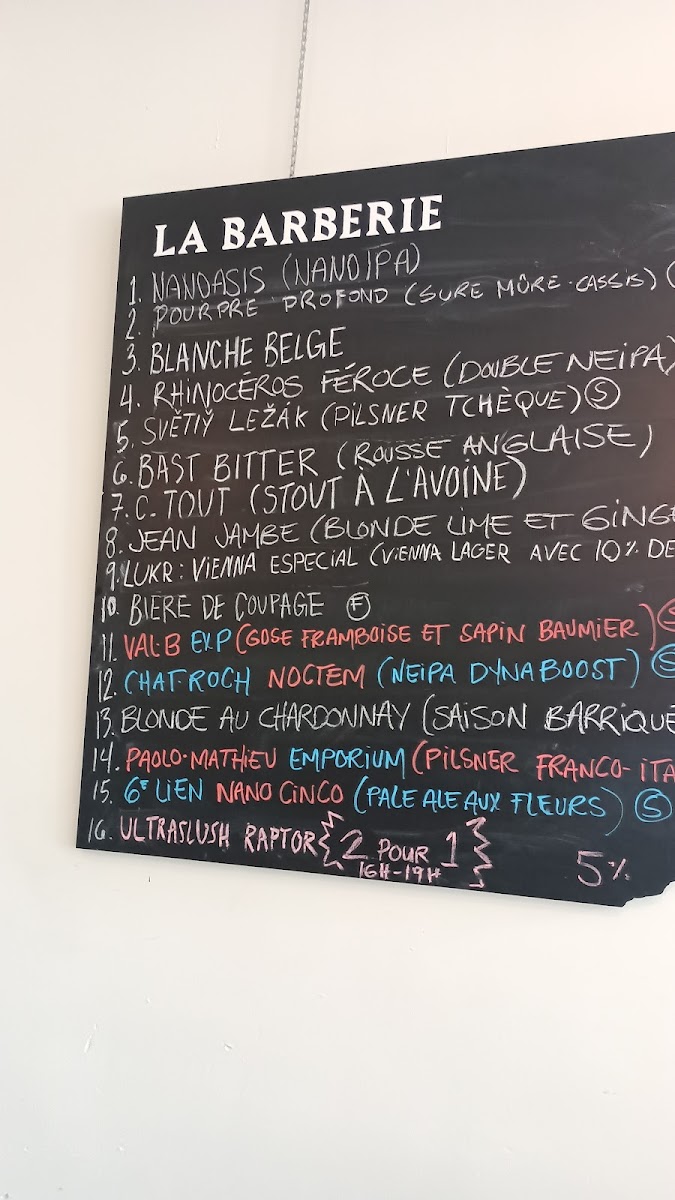 LA BARBERIE
1. NANOASIS (NANOIPA)
2. POURPRE PROFOND (SURE MÛRE-CASSIS)
3. BLANCHE BELGE
4. RHINOCÉROS FÉROCE (DOUBLE NEIPA)
5. SVĚTIŸ LEŽÁK (PILSNER TCHÈQUE) Ⓢ
6. BAST BITTER (ROUSSE ANGLAISE)
7. C-TOUT (STOUT À L'AVOINE)
8. JEAN JAMBE (BLONDE LIME ET GINGE
9. LUKR: VIENNA ESPECIAL (VIENNA LAGER AVEC 10% DE
10. BIÈRE DE COUPAGE Ⓕ
11. VAL B EXP (GOSE FRAMBOISE ET SAPIN BAUMIER) Ⓢ
12. CHATROCH NOCTEM (NEIPA DYNABOOST) Ⓢ
13. BLONDE AU CHARDONNAY (SAISON BARRIQUÉ
14. PAOLO-MATHIEU EMPORIUM (PILSNER FRANCO-ITA
15. 6E LIEN NANO CINCO (PALE ALE AUX FLEURS) Ⓢ
16. ULTRASLUSH RAPTOR 2 POUR 1 5%
16H-19H